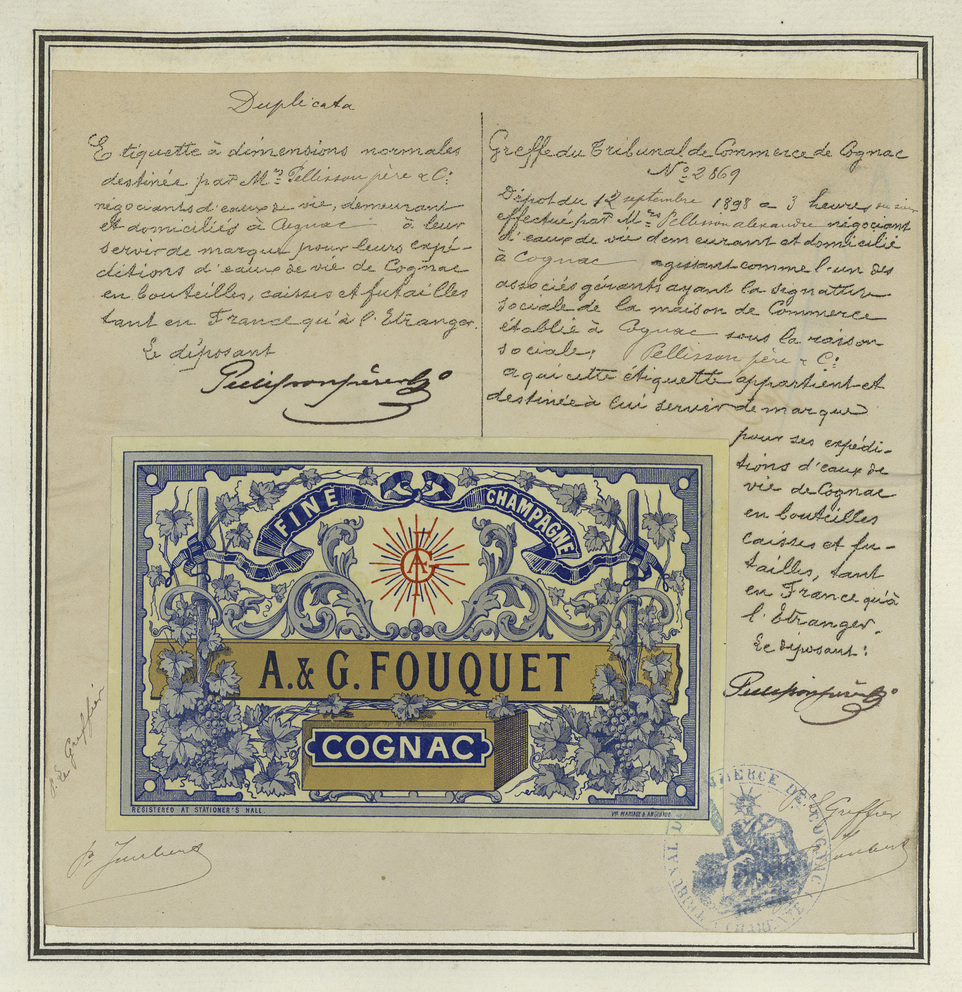 Duplicata
Etiquette à dimensions normales
destinée par Mrs Pellisson père & Cie
négociants d'eaux de vie, demeurant
et domiciliés à Cognac à leur
servir de marque pour leurs expé-
ditions d'eaux de vie de Cognac
en bouteilles, caisses et futailles
tant en France qu'à l'Etranger.
Le déposant
Pellisson père & Co
Greffe du Tribunal de Commerce de Cognac
No 2869
Dépot du 12 septembre 1898 a 3 heures du soir
effectué par Mrs Pellisson alexandre négociant
d'eaux de vie demeurant et domicilié
à Cognac agissant comme l'un des
associés gérants ayant la signature
sociale de la maison de Commerce
établie à Cognac sous la raison
sociale: Pellisson père & Cie
a qui cette étiquette appartient et
destinée à lui servir de marque
pour ses expédi-
tions d'eaux de
vie de Cognac
en bouteilles
caisses et fu-
tailles, tant
en France qu'à
l'Etranger.
Le déposant:
Pellisson père & Co
FINE CHAMPAGNE
AG
A. & G. FOUQUET
COGNAC
REGISTERED AT STATIONER'S HALL.
p. le Greffier
p. le Greffier
TRIBUNAL DE COMMERCE DE COGNAC
CHARENTE